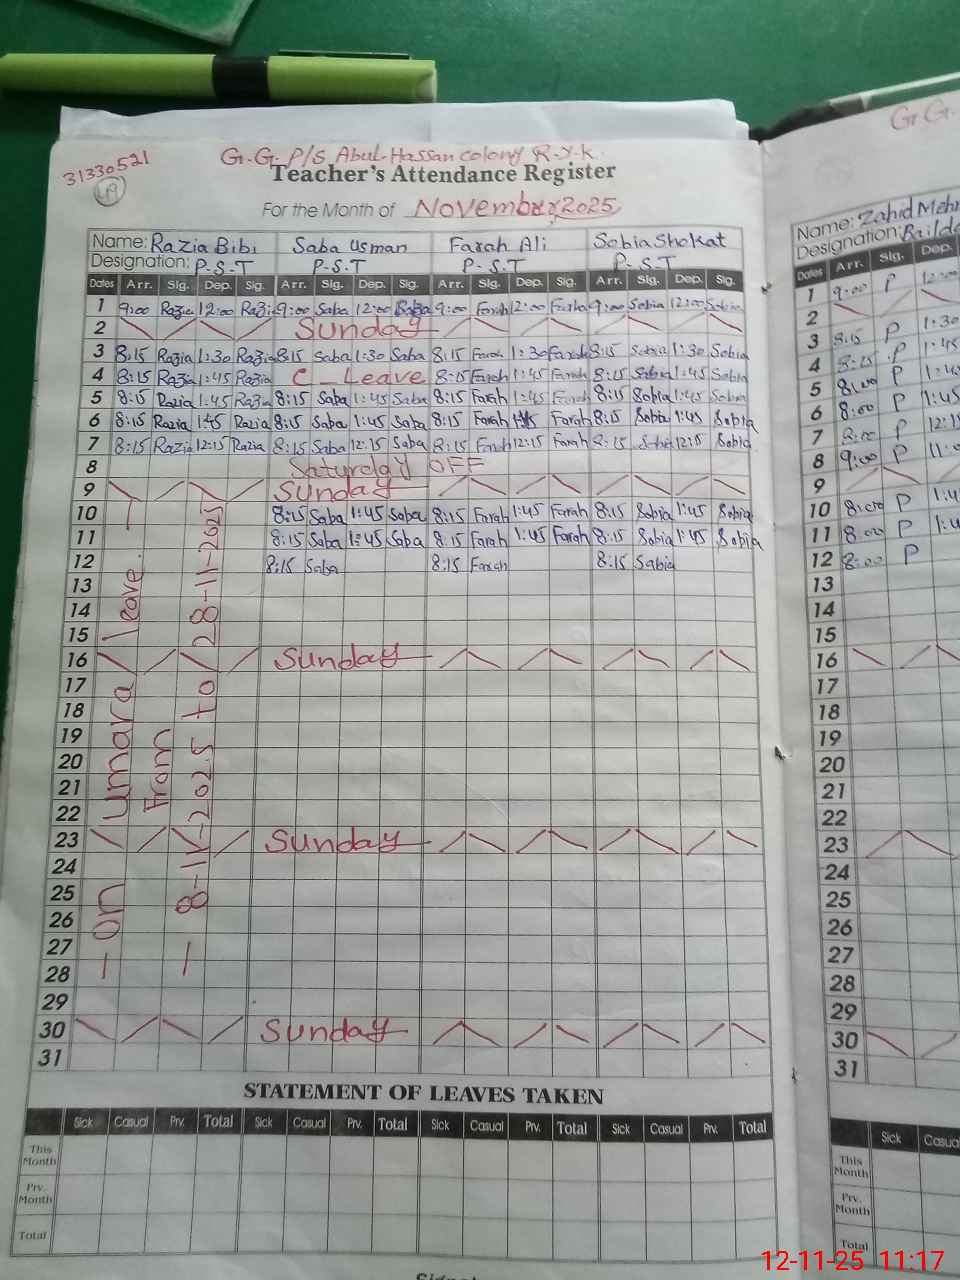 31330521
49
G.G. P/S Abul-Hassan colony R.Y.K.
Teacher's Attendance Register
For the Month of November 2025
Name: Razia Bibi Saba Usman Farah Ali Sobia Shokat
Designation: P-S-T P-S-T P-S-T P-S-T
Dates Arr. Sig. Dep. Sig. Arr. Sig. Dep. Sig. Arr. Sig. Dep. Sig. Arr. Sig. Dep. Sig.
1 9:00 Razia 12:00 Razia 9:00 Saba 12:00 Saba 9:00 Farah 12:00 Farha 9:00 Sobia 12:00 Sobia
2 Sunday
3 8:15 Razia 1:30 Razia 8:15 Saba 1:30 Saba 8:15 Farah 1:30 Farah 8:15 Sobia 1:30 Sobia
4 8:15 Razia 1:45 Razia C - Leave 8:15 Farah 1:45 Farah 8:15 Sobia 1:45 Sobia
5 8:15 Razia 1:45 Razia 8:15 Saba 1:45 Saba 8:15 Farah 1:45 Farah 8:15 Sobia 1:45 Sobia
6 8:15 Razia 1:45 Razia 8:15 Saba 1:45 Saba 8:15 Farah 1:45 Farah 8:15 Sobia 1:45 Sobia
7 8:15 Razia 12:15 Razia 8:15 Saba 12:15 Saba 8:15 Farah 12:15 Farah 8:15 Sobia 12:15 Sobia
8 Saturday OFF
9 Sunday
10 8:15 Saba 1:45 Saba 8:15 Farah 1:45 Farah 8:15 Sobia 1:45 Sobia
11 8:15 Saba 1:45 Saba 8:15 Farah 1:45 Farah 8:15 Sobia 1:45 Sobia
12 8:15 Saba 8:15 Farah 8:15 Sobia
13
14
15
16 Sunday
17
18
19
20
21
22
23 Sunday
24
25
26
27
28
29
30 Sunday
31
- on umara leave -
From
- 8-11-2025 to 28-11-2025 -
STATEMENT OF LEAVES TAKEN
Sick Casual Prv. Total Sick Casual Prv. Total Sick Casual Prv. Total Sick Casual Prv. Total
This Month
Prv. Month
Total
G.G.
Name: Zahid Mehm
Designation:
Dates Arr. Sig. Dep.
1 9:00 P 12:00
2
3 8:15 P 1:30
4 8:15 P 1:45
5 8:00 P 1:4
6 8:00 P 1:45
7 8:00 P 12:15
8 9:00 P 11:0
9
10 8:00 P 1:4
11 8:00 P 1:4
12 8:00 P
13
14
15
16
17
18
19
20
21
22
23
24
25
26
27
28
29
30
31
Sick Casual
This Month
Prv. Month
Total
12-11-25 11:17